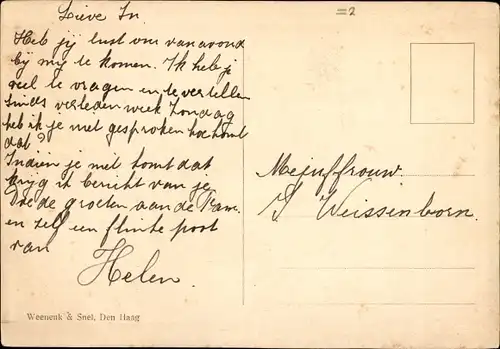 Lieve In
Heb jij lust om vanavond
bij mij te komen. Ik heb je
veel te vragen en te vertellen
sinds verleden week Zondag
heb ik je niet gesproken hoe komt
dat?
Indien je niet komt dat
krijg ik bericht van je
Doe de groeten aan de Fam.
en zelf een flinke poot
van
Helen
Mejuffrouw.
J Weissenborn.
Weenenk & Snel, Den Haag